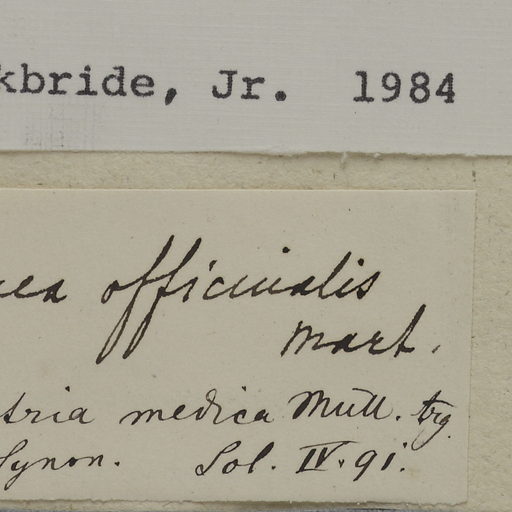 kbride, Jr. 1984
ea officinalis
Mart.
tria medica Mull.
Synon. Sol. IV. 91.